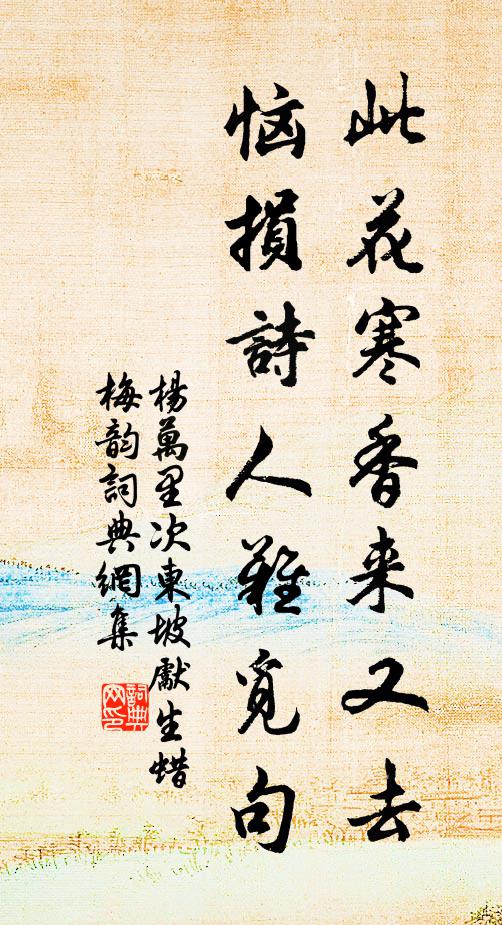 此花寒香来又去
恼損詩人難覓句
楊萬里次東坡獻生蜡
梅韵詞典網集
詞典
网印